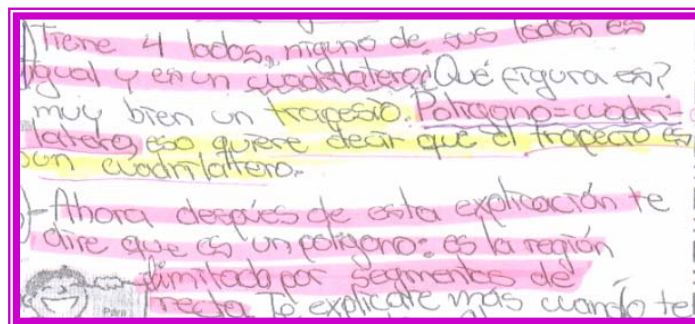 Tiene 4 lados, niguno de sus lados es
igual y es un cuadrilatero ¿Qué figura es?
muy bien un trapesio. Poligono=cuadri-
latero, eso quiere decir que el trapecio es
un cuadrilattero.
- Ahora despúes de esta explicación te
dire que es un poligono: es la región
limitada por segmentos de
recta Te explicaré más cuando te